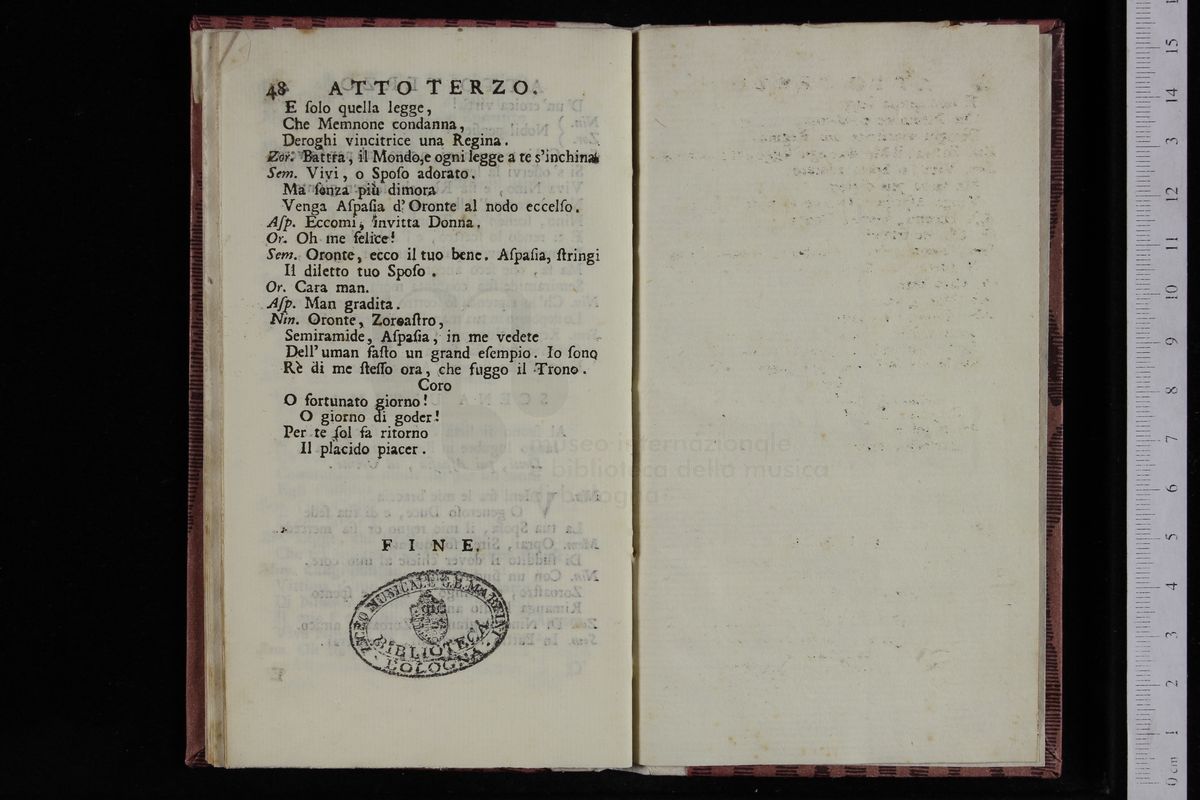 48 ATTO TERZO.
E ſolo quella legge,
Che Memnone condanna,
Deroghi vincitrice una Regina.
Zor. Battra, il Mondo, e ogni legge a te s'inchina.
Sem. Vivi, o Spoſo adorato.
Ma ſenza più dimora
Venga Aſpaſia d'Oronte al nodo eccelſo.
Aſp. Eccomi, invitta Donna.
Or. Oh me felice!
Sem. Oronte, ecco il tuo bene. Aſpaſia, ſtringi
Il diletto tuo Spoſo.
Or. Cara man.
Aſp. Man gradita.
Nin. Oronte, Zoroaſtro,
Semiramide, Aſpaſia, in me vedete
Dell' uman faſto un grand eſempio. Io ſono
Rè di me ſteſſo ora, che fuggo il Trono.
Coro
O fortunato giorno!
O giorno di goder!
Per te ſol fa ritorno
Il placido piacer.
FINE.
LICEO MUSICALE G.B. MARTINI
BIBLIOTECA
BOLOGNA
museo internazionale
e biblioteca della musica
di bologna
0 cm 1 2 3 4 5 6 7 8 9 10 11 12 3 14 15